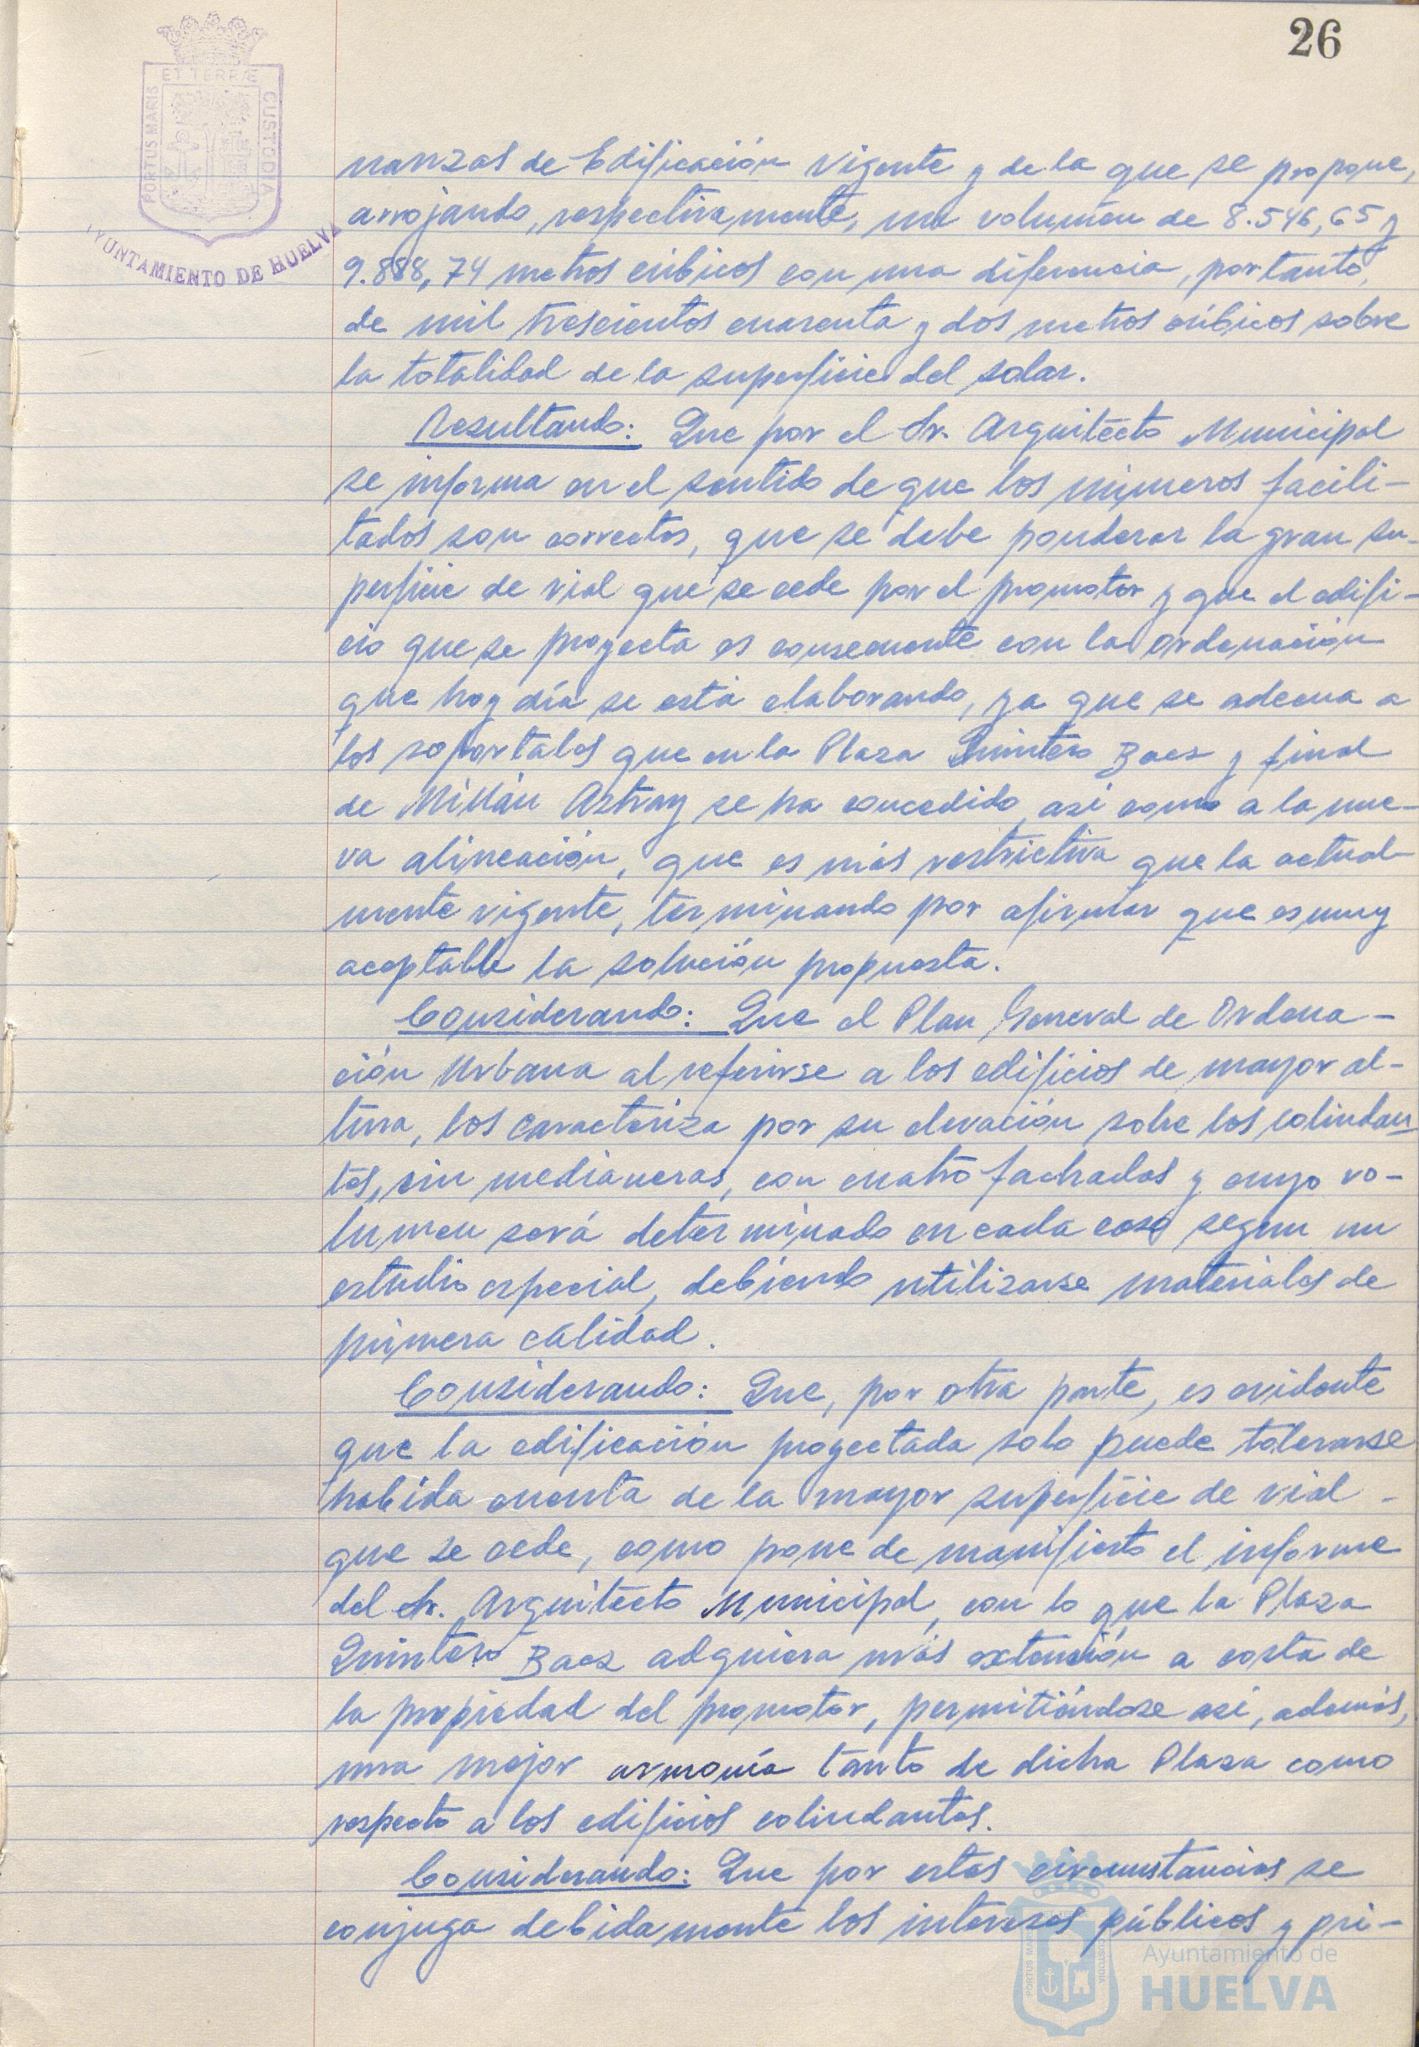 26
ET TERRÆ
PORTUS MARIS
CUSTODIA
AYUNTAMIENTO DE HUELVA
nanzas de Edificación vigente y de la que se propone,
arrojando, respectivamente, un volumen de 8.546,65 y
9.888,74 metros cúbicos con una diferencia, por tanto,
de mil trescientos cuarenta y dos metros cúbicos sobre
la totalidad de la superficie del solar.
Resultando: Que por el Sr. Arquitecto Municipal
se informa en el sentido de que los números facili-
tados son correctos, que se debe ponderar la gran su-
perficie de vial que se cede por el promotor y que el edifi-
cio que se proyecta es consecuente con la ordenación
que hoy día se está elaborando, ya que se adecua a
los soportales que en la Plaza Quintero Baez y final
de Millán Astray se ha concedido así como a la nue-
va alineación, que es más restrictiva que la actual-
mente vigente, terminando por afirmar que es muy
aceptable la solución propuesta.
Considerando: Que el Plan General de Ordena-
ción Urbana al referirse a los edificios de mayor al-
tura, los caracteriza por su elevación sobre los colindan-
tes, sin medianeras, con cuatro fachadas y cuyo vo-
lumen será determinado en cada caso segun un
estudio especial, debiendo utilizarse materiales de
primera calidad.
Considerando: Que, por otra parte, es evidente
que la edificación proyectada solo puede tolerarse
habida cuenta de la mayor superficie de vial -
que se cede, como pone de manifiesto el informe
del Sr. Arquitecto Municipal, con lo que la Plaza
Quintero Baez adquiera más extensión a costa de
la propiedad del promotor, permitiéndose así, además,
una mejor armonía tanto de dicha Plaza como
respecto a los edificios colindantes.
Considerando: Que por estas circunstancias se
conjuga debidamente los intereses públicos y pri-
Ayuntamiento de
HUELVA